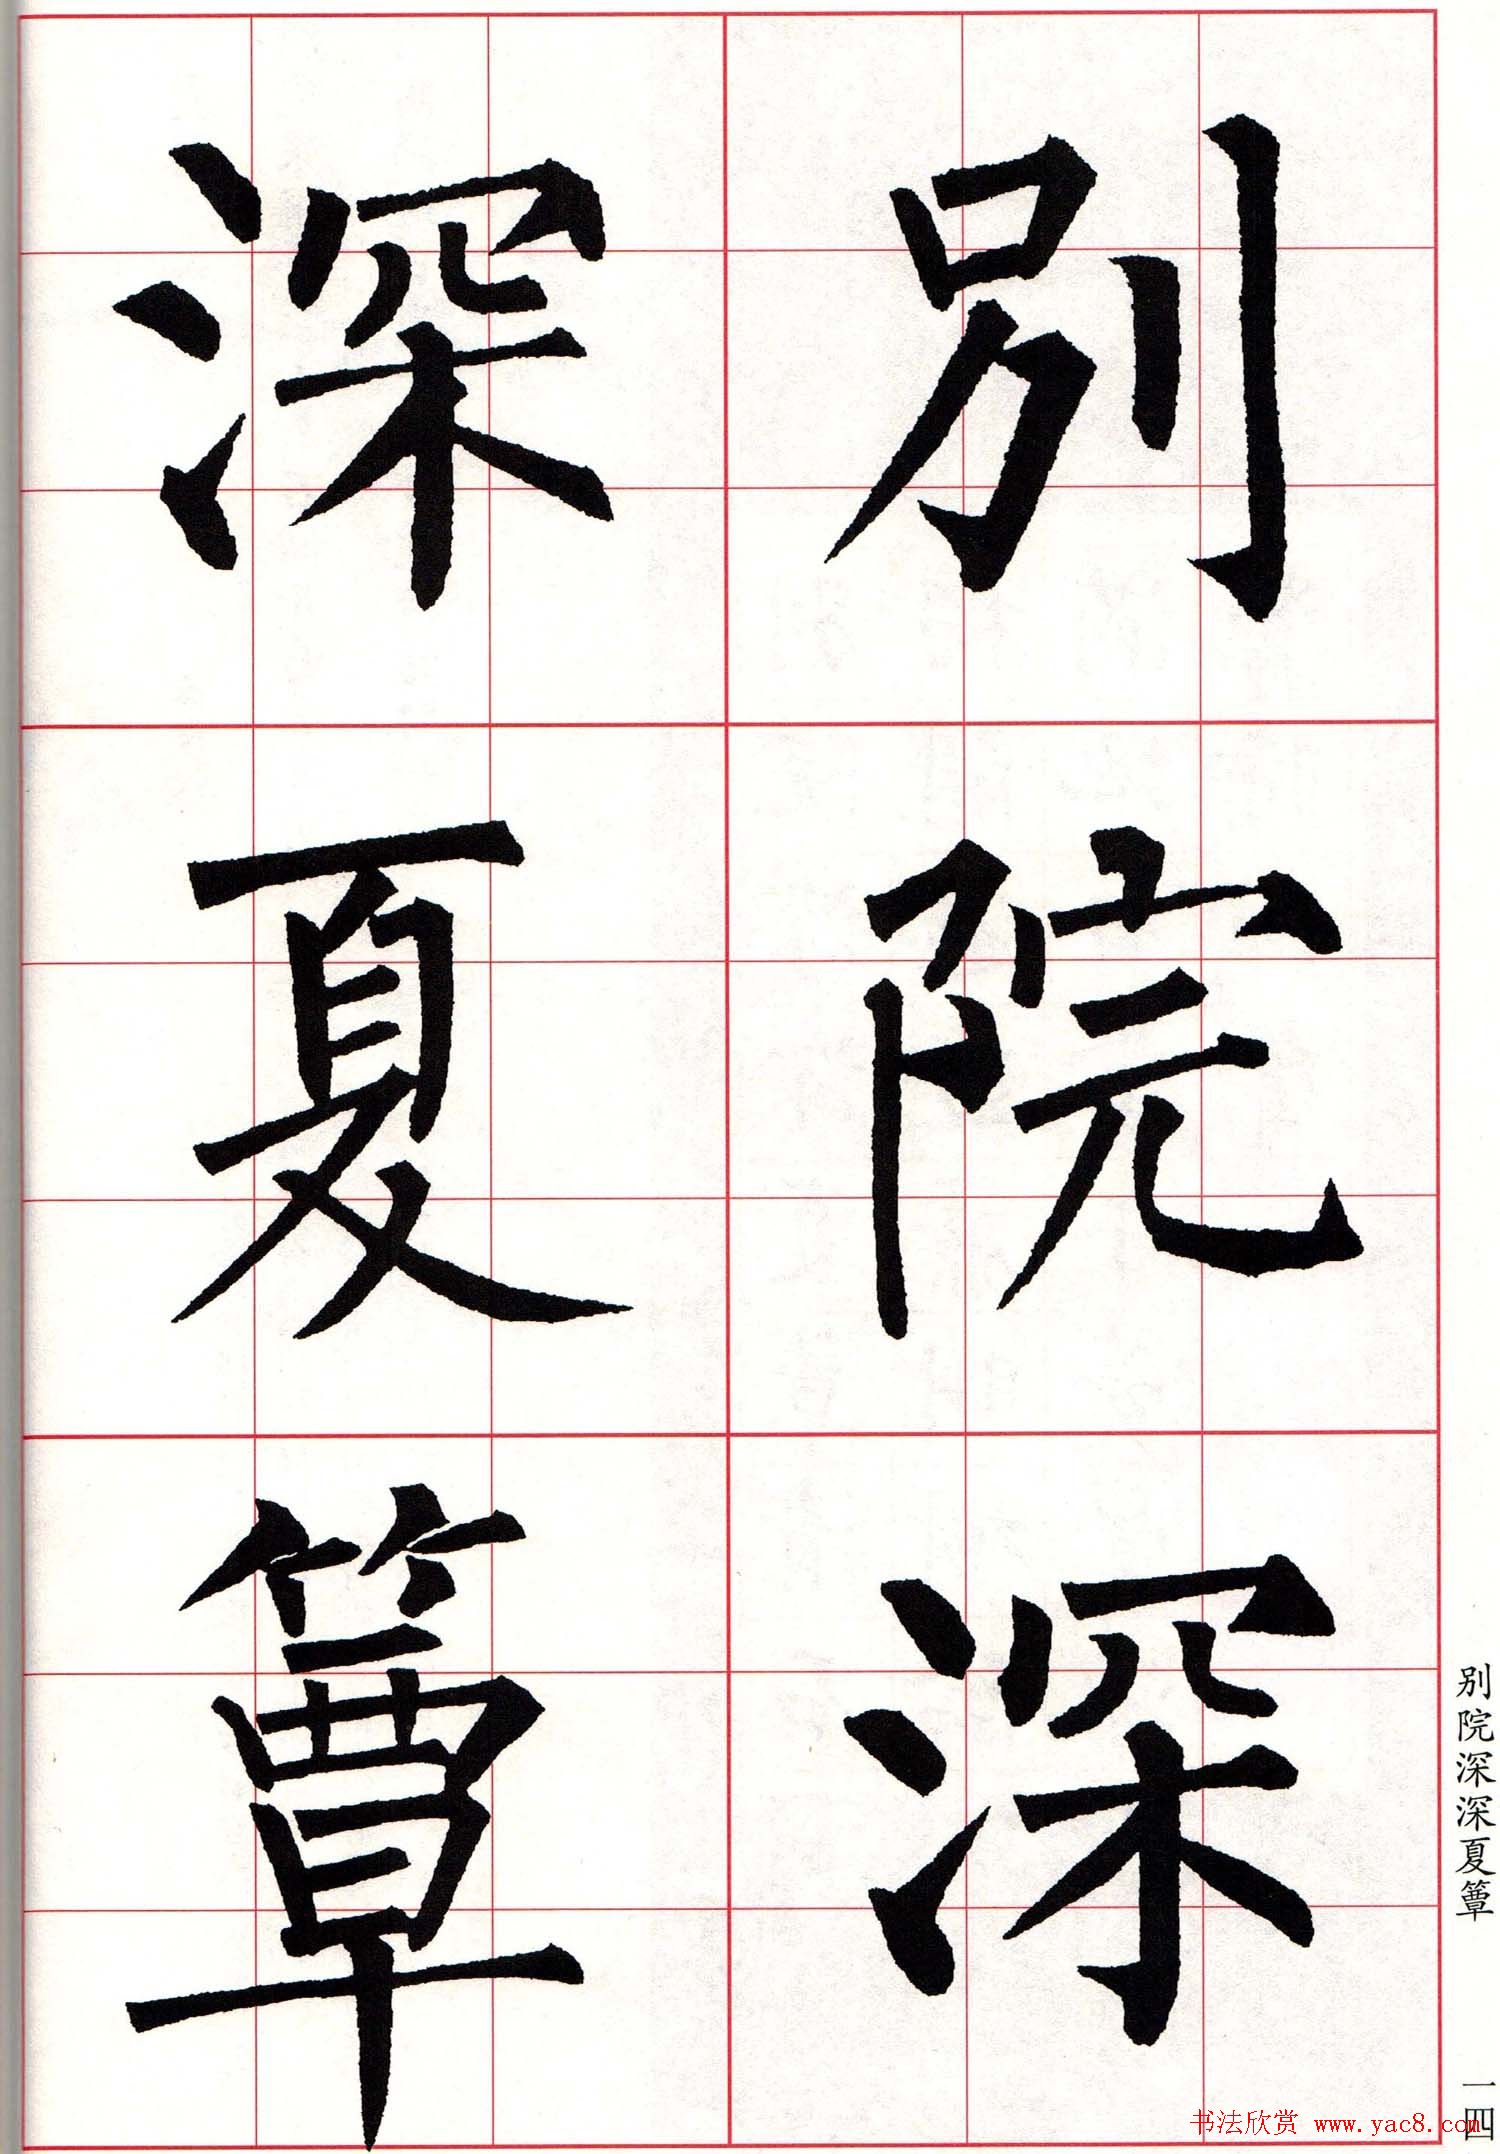 别院深
深夏簟
别院深深夏簟
一四
书法欣赏 www.yac8.com